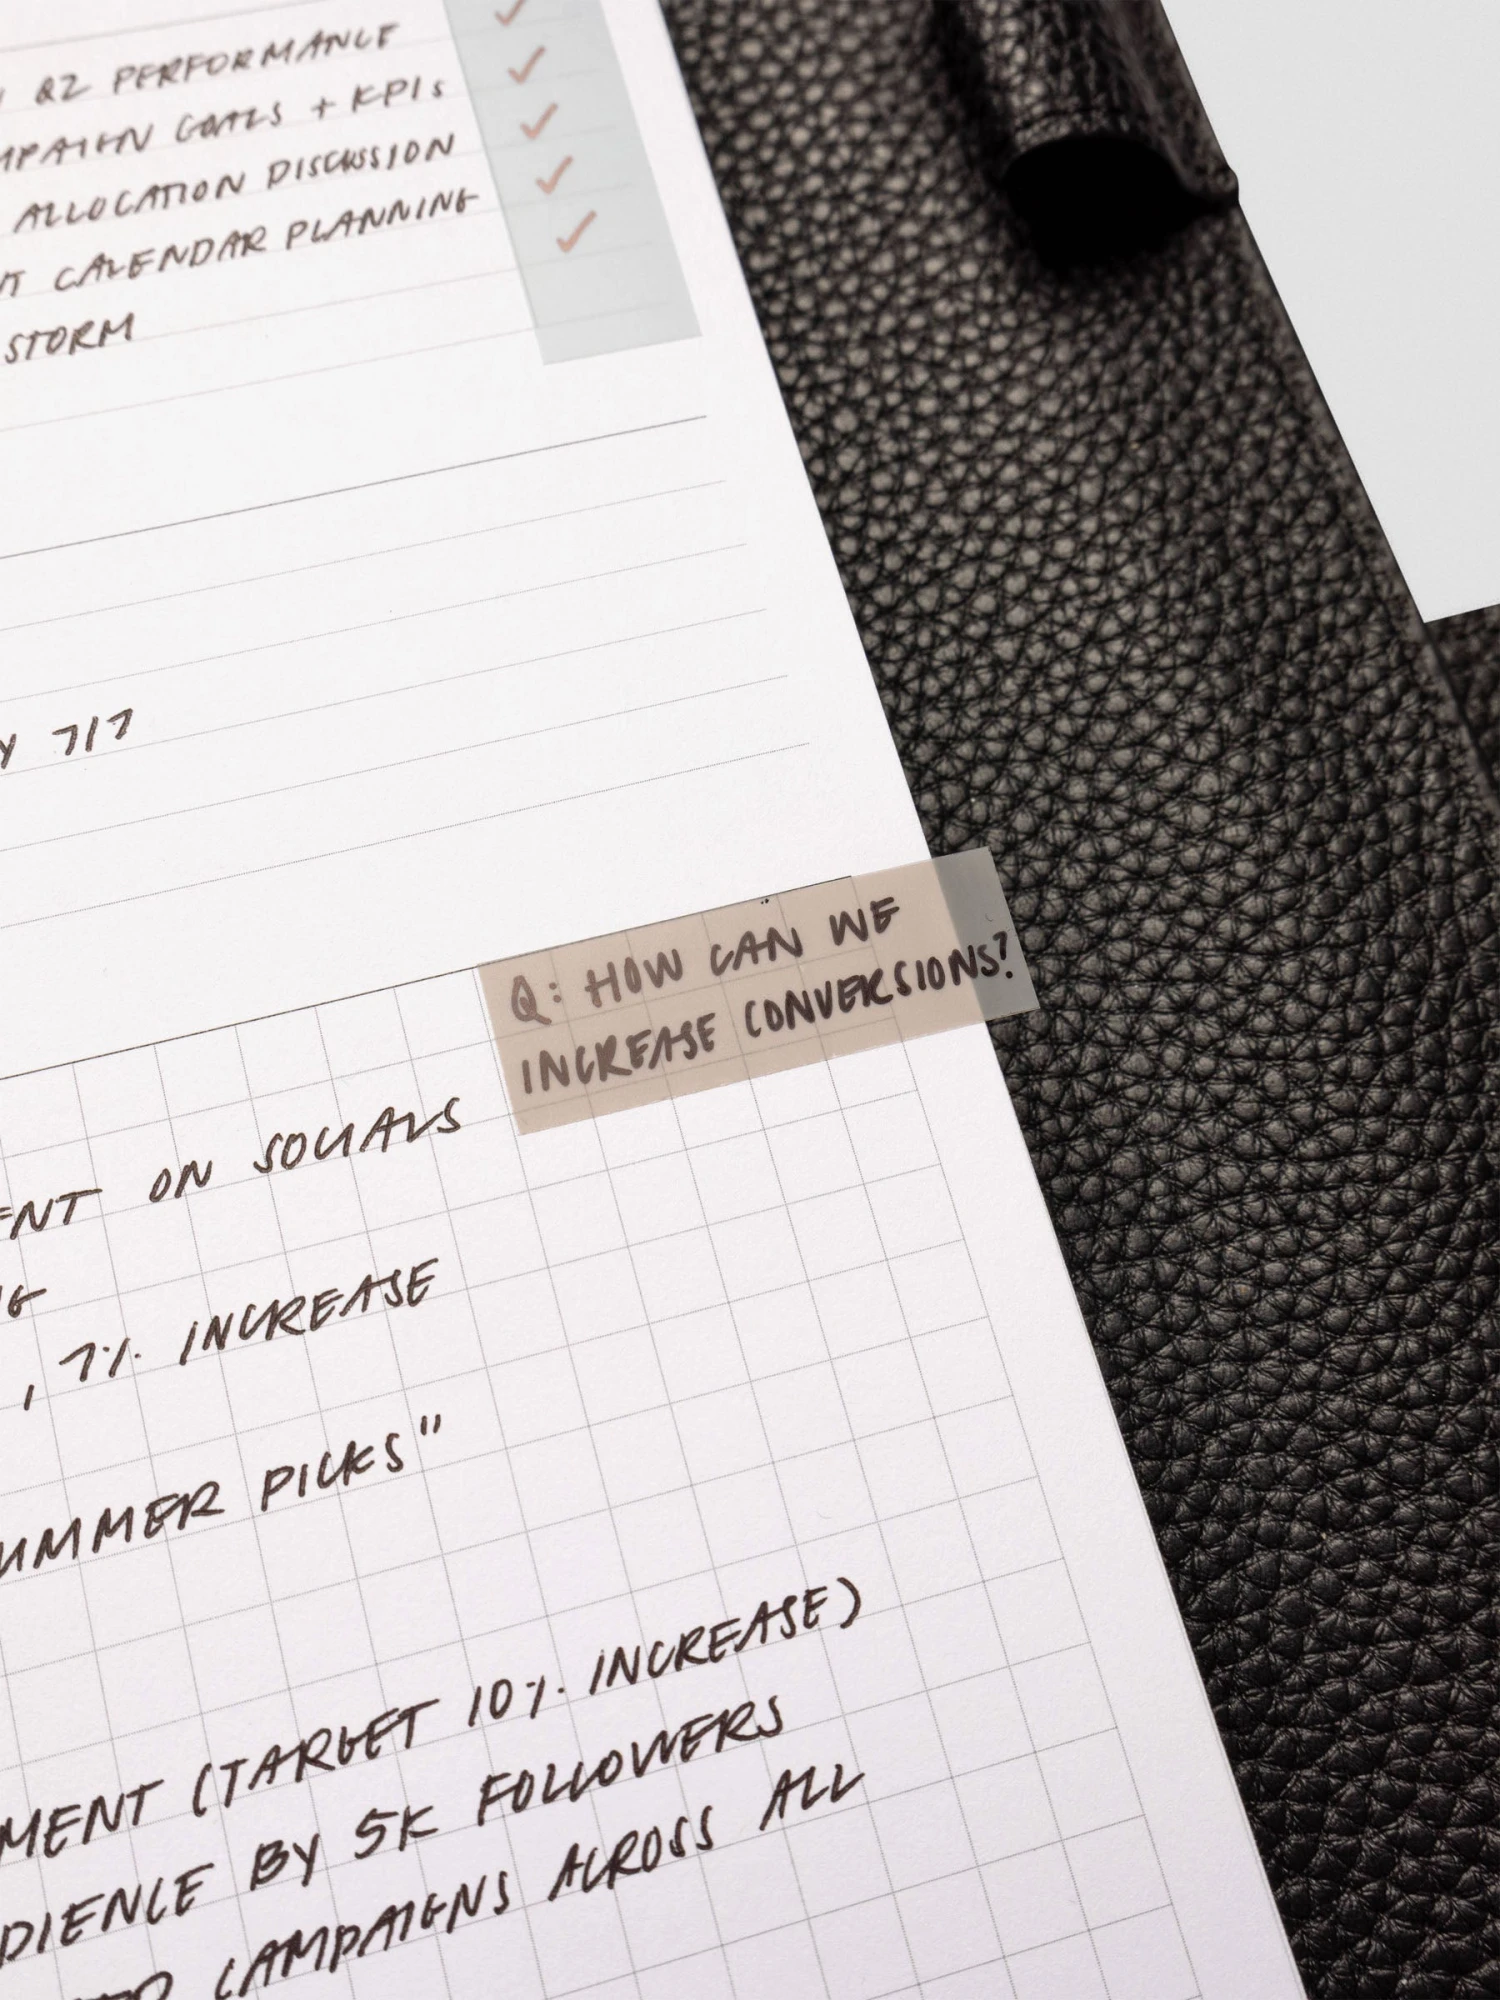 Q2 PERFORMANCE
GOALS + KPIs
ALLOCATION DISCUSSION
CALENDAR PLANNING
STORM
7/7
Q: HOW CAN WE
INCREASE CONVERSIONS?
ON SOCIALS
, 7% INCREASE
PICKS"
(TARGET 10% INCREASE)
BY 5K FOLLOWERS
CAMPAIGNS ACROSS ALL